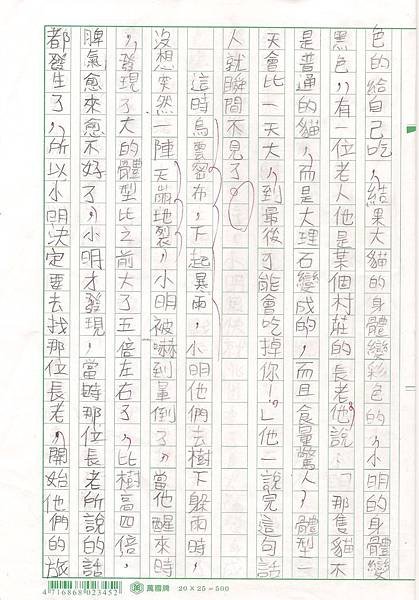 色的給自己吃，結果大貓的身體變彩色的，小明的身體變
黑色，有一位老人他是某個村莊的長老他說：「那隻貓不
是普通的貓，而是大理石變成的，而且食量驚人，體型一
天會比一天大，到最後才能會吃掉你！」他一說完這句話
人就瞬間不見了。
這時烏雲密布，下起暴雨，小明他們去樹下躲雨時，
沒想突然一陣天崩地裂，小明被嚇到暈倒了，當他醒來時
，發現了大的體型比之前大了五倍左右了，比樹高四倍，
脾氣愈來愈不好了，小明才發現，當時那位長老所說的話
都發生了，所以小明決定要去找那位長老，開始他們的旅
4 716868 023452
萬國牌 20 X 25 = 500